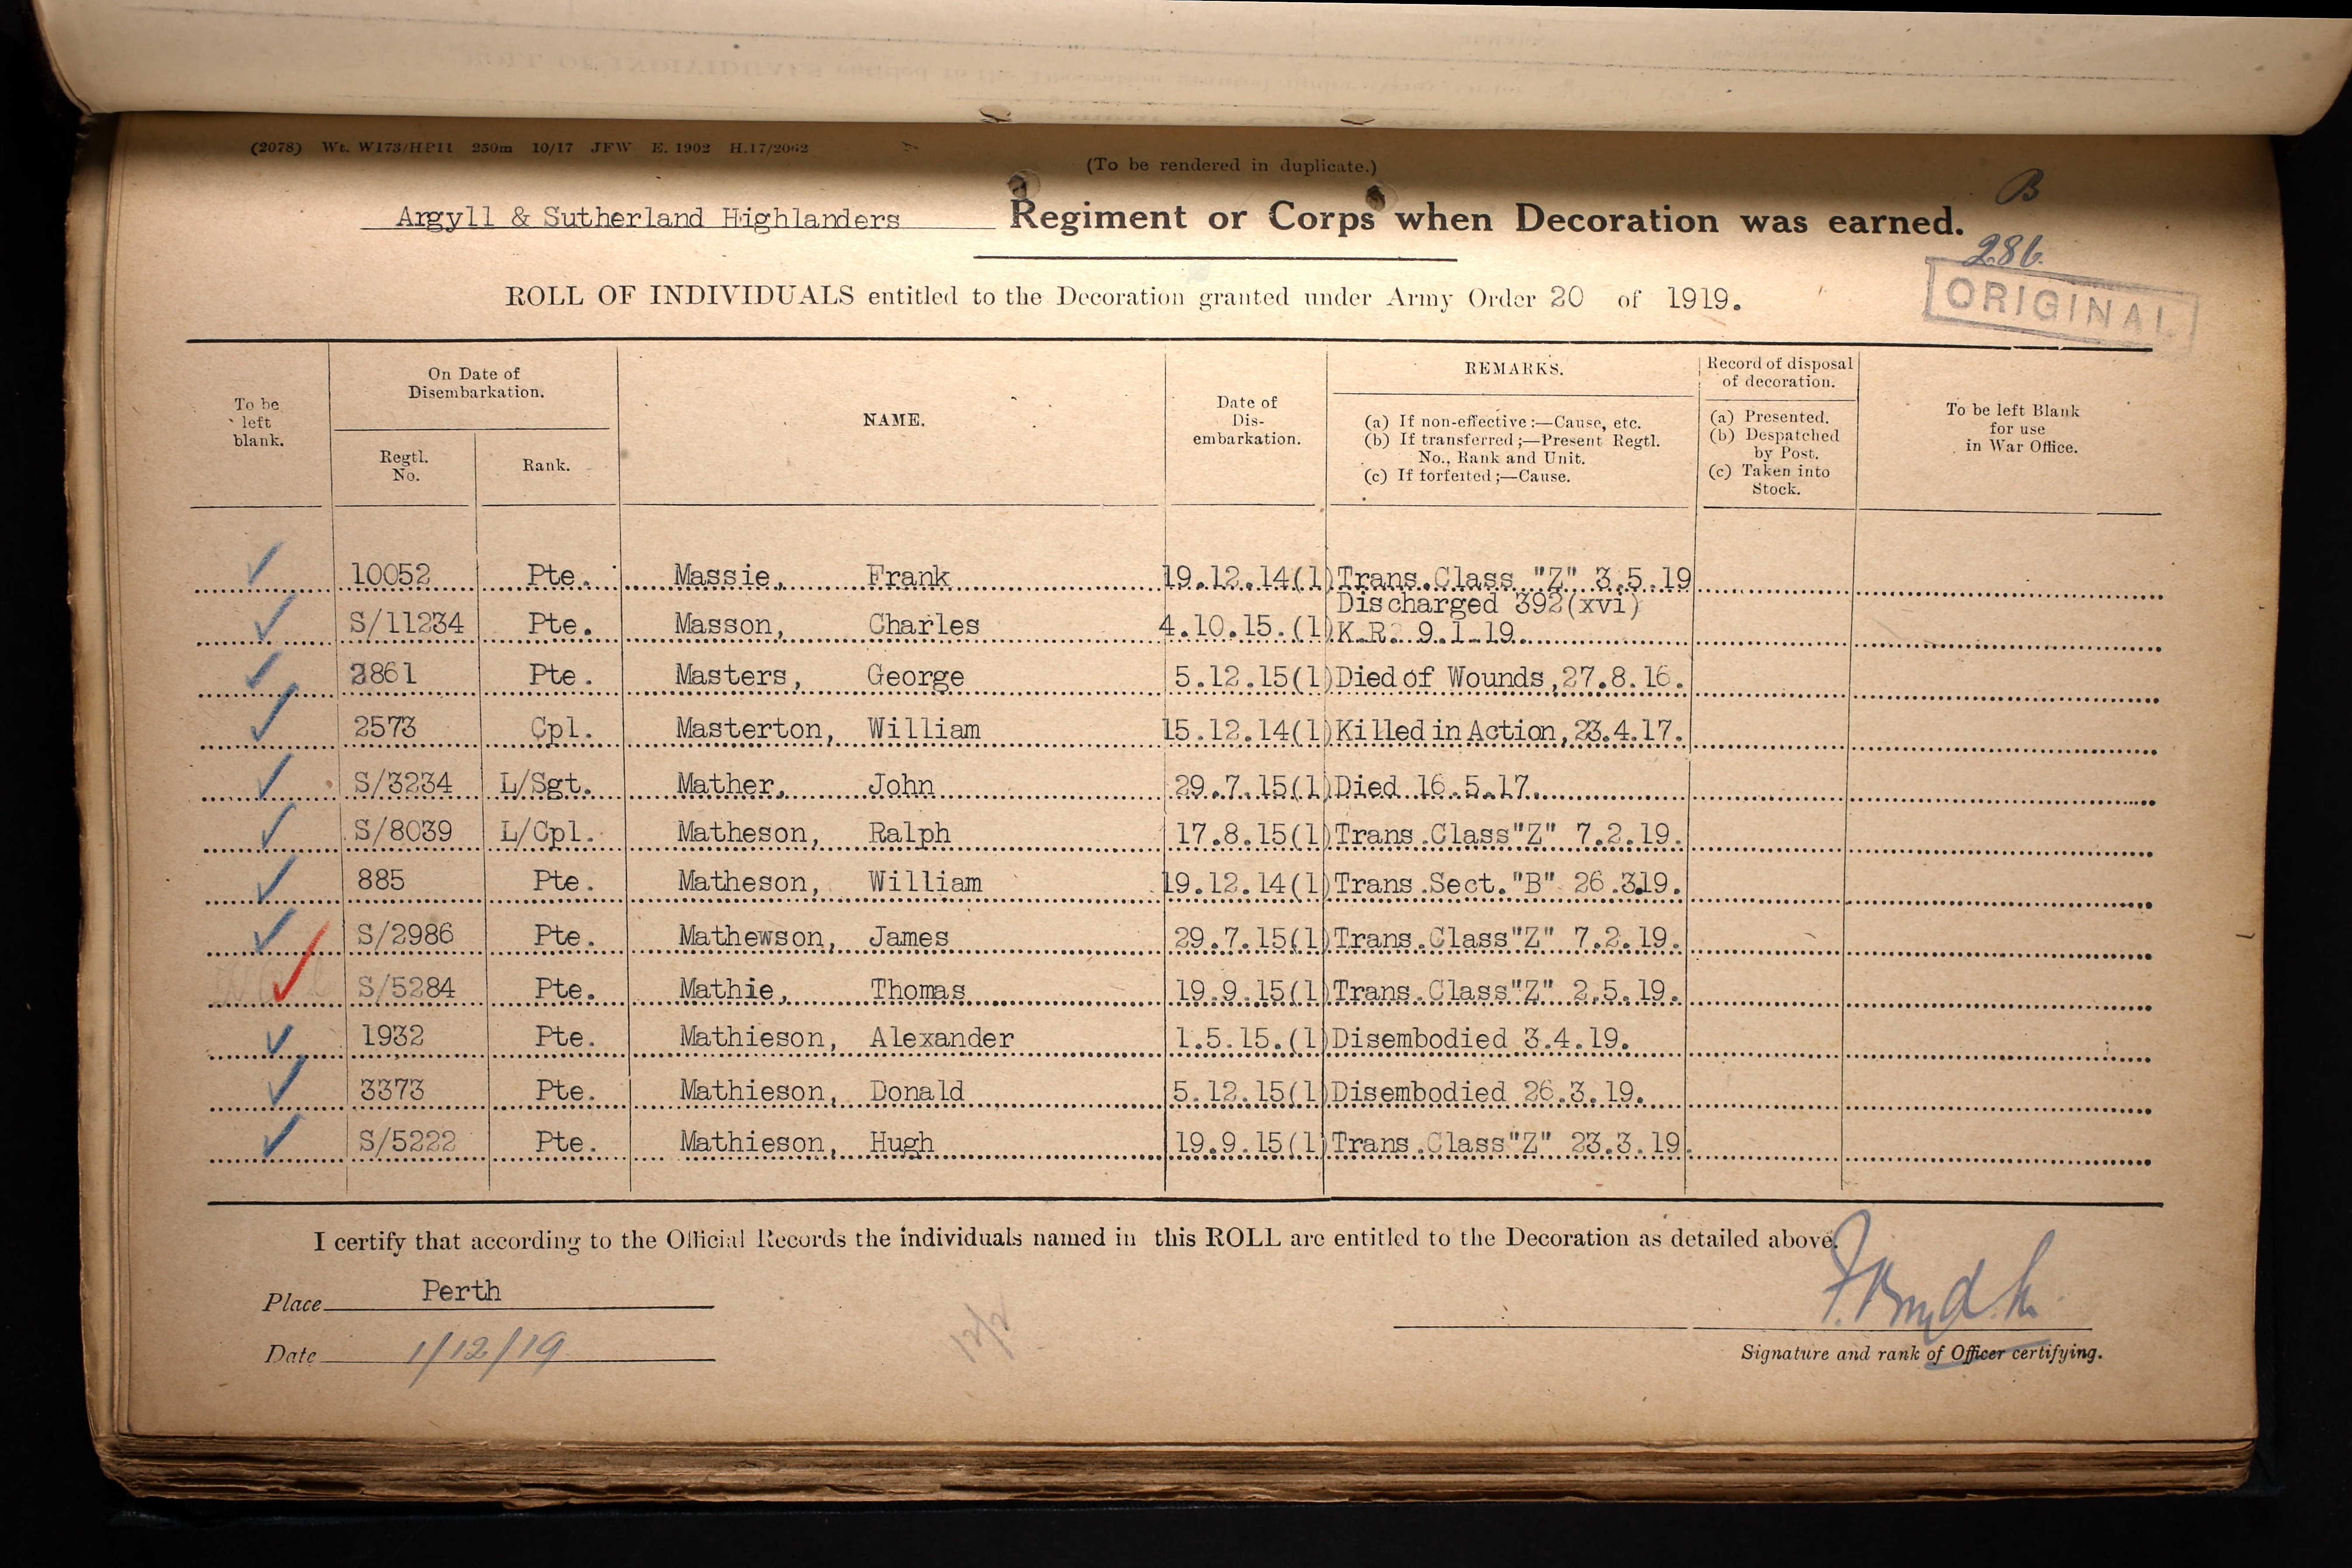 (2078) Wt. W173/HP11 250m 10/17 JFW E. 1902 H.17/2062
(To be rendered in duplicate.)
B
Argyll & Sutherland Highlanders Regiment or Corps when Decoration was earned.
286.
ORIGINAL
ROLL OF INDIVIDUALS entitled to the Decoration granted under Army Order 20 of 1919.
To be left blank.
On Date of Disembarkation.
Regtl. No.
Rank.
NAME.
Date of Dis-embarkation.
REMARKS.
(a) If non-effective:—Cause, etc.
(b) If transferred;—Present Regtl. No., Rank and Unit.
(c) If forfeited;—Cause.
Record of disposal of decoration.
(a) Presented.
(b) Despatched by Post.
(c) Taken into Stock.
To be left Blank for use in War Office.
10052 Pte. Massie, Frank 19.12.14(1) Trans.Class "Z" 3.5.19
Discharged 392(xvi)
S/11234 Pte. Masson, Charles 4.10.15.(1) K.R. 9.1.19.
2861 Pte. Masters, George 5.12.15(1) Died of Wounds,27.8.16.
2573 Cpl. Masterton, William 15.12.14(1) Killed in Action,23.4.17.
S/3234 L/Sgt. Mather, John 29.7.15(1) Died 16.5.17.
S/8039 L/Cpl. Matheson, Ralph 17.8.15(1) Trans.Class"Z" 7.2.19.
885 Pte. Matheson, William 19.12.14(1) Trans.Sect."B" 26.3.19.
S/2986 Pte. Mathewson, James 29.7.15(1) Trans.Class"Z" 7.2.19.
S/5284 Pte. Mathie, Thomas 19.9.15(1) Trans.Class"Z" 2.5.19.
1932 Pte. Mathieson, Alexander 1.5.15.(1) Disembodied 3.4.19.
3373 Pte. Mathieson, Donald 5.12.15(1) Disembodied 26.3.19.
S/5222 Pte. Mathieson, Hugh 19.9.15(1) Trans.Class"Z" 23.3.19.
I certify that according to the Official Records the individuals named in this ROLL are entitled to the Decoration as detailed above.
Place Perth
Date 1/12/19
Signature and rank of Officer certifying.